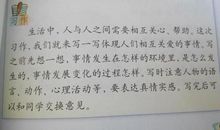 生活中，人与人之间需要相互关心、帮助。这次
习作，我们就来写一写体现人们相互关爱的事情。写
之前先想一想，事情发生在怎样的环境里，是怎么发
生的，事情发展变化的过程怎样。写时注意人物的语
言、动作、心理活动等，要表达真情实感。写完后可
以和同学交换意见。